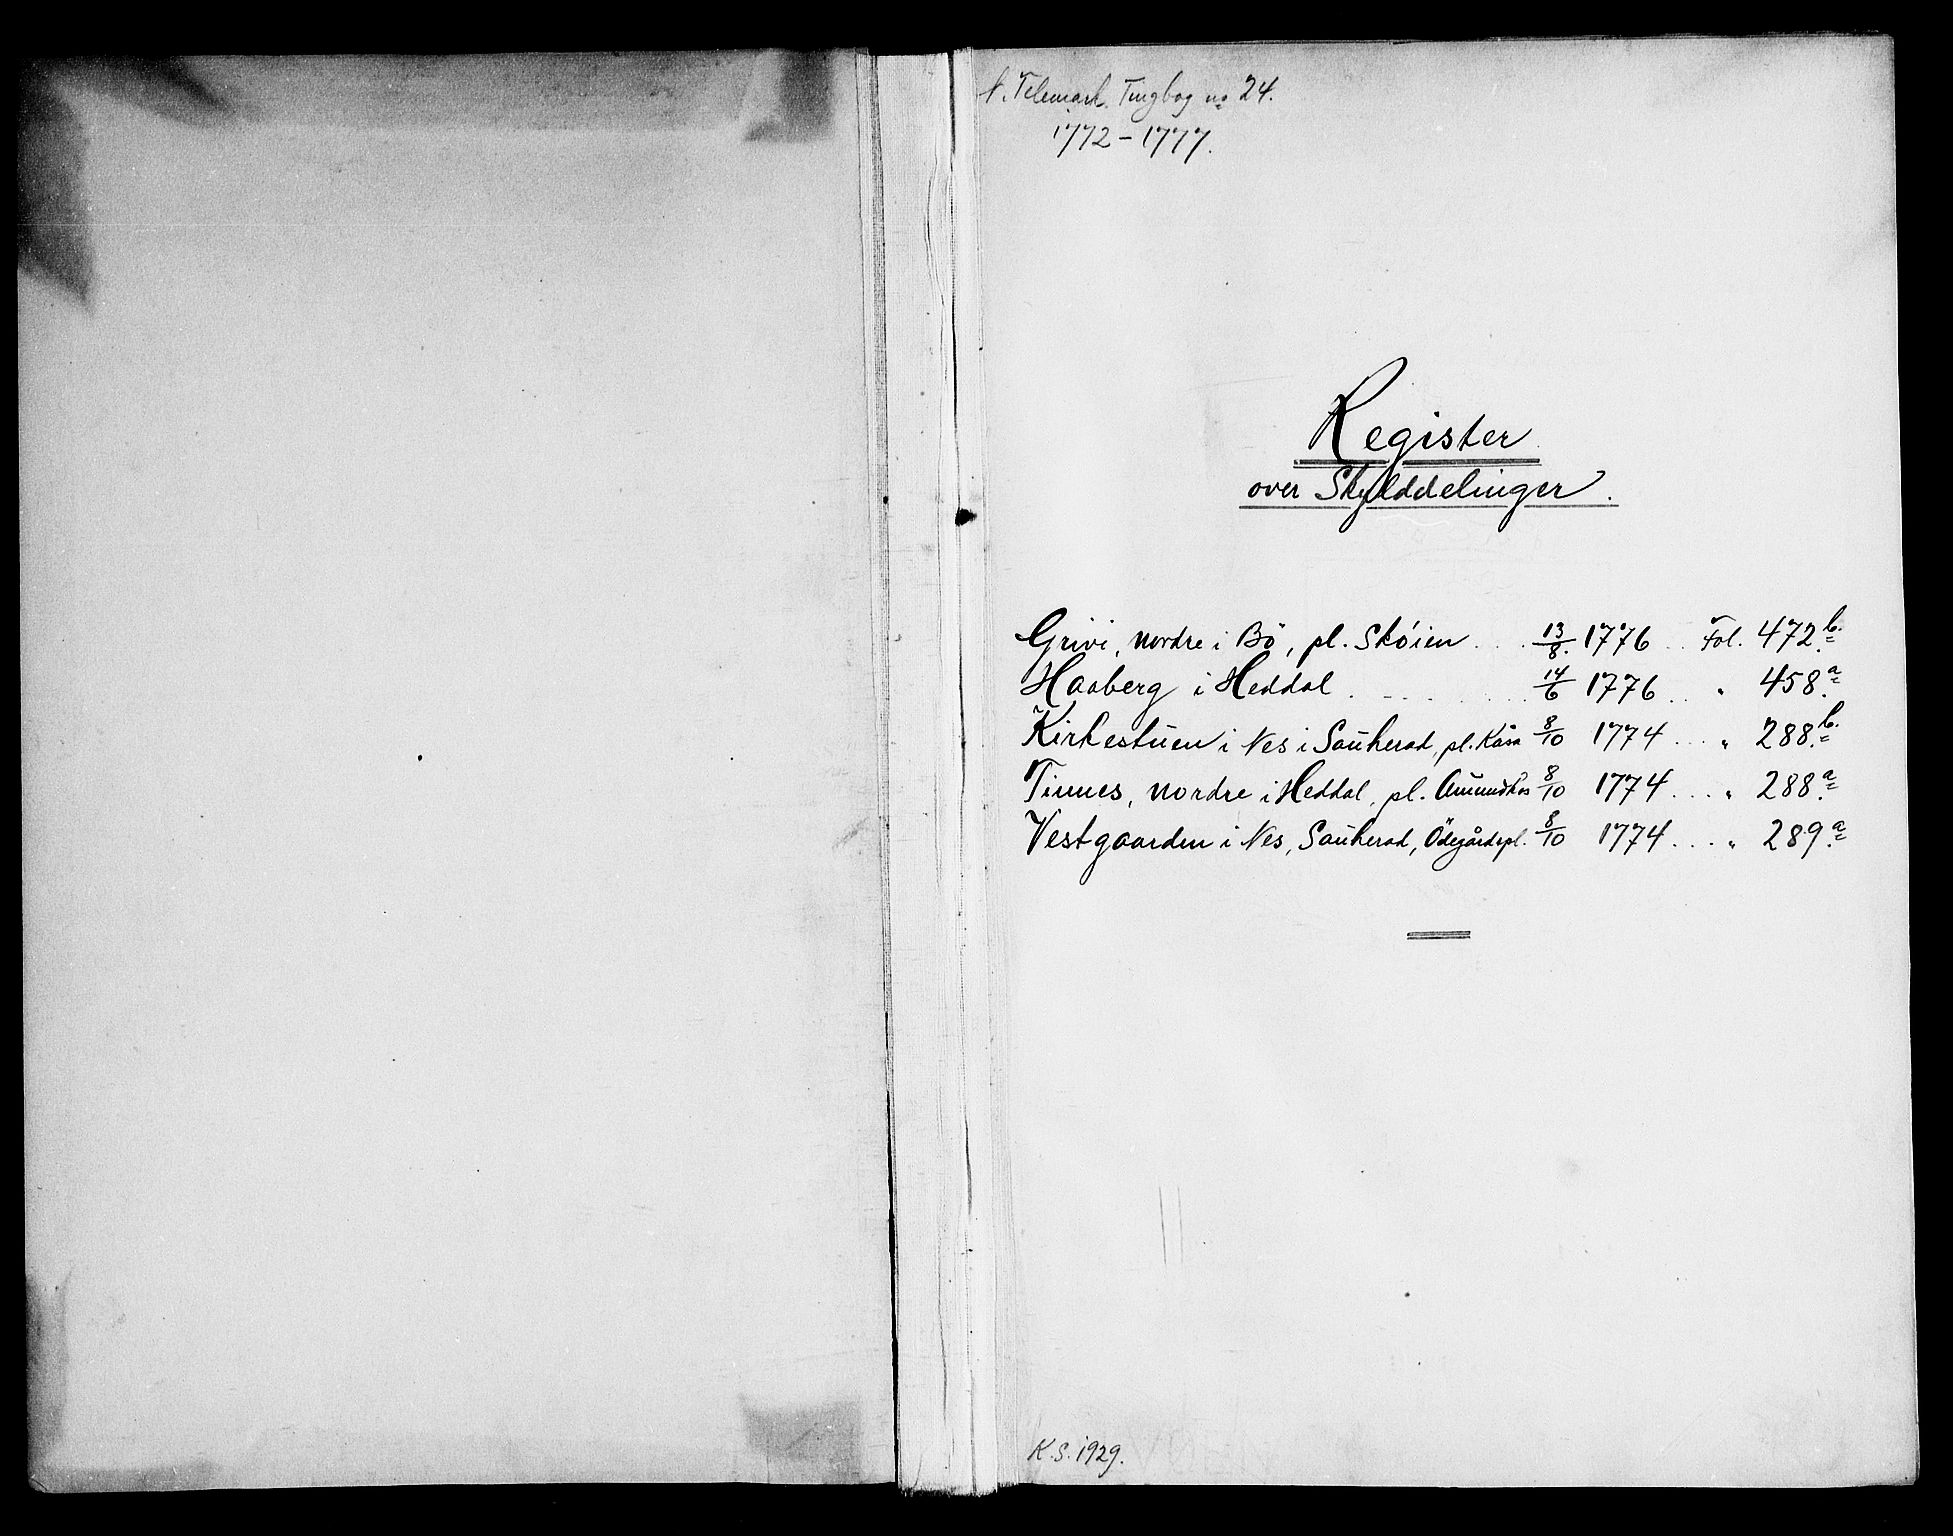 N. Telemark. Tingbog no 24.
1772 – 1777.
Register
over Skylddelinger.
Grivi, nordre i Bö, pl. Sköien . . . 13/8. 1776 . . Fol. 472 b.
Haaberg i Heddal . . . . . 14/6 1776 . . " 458 a.
Kirkestuen i Nes i Sauherad, pl. Kåsa 8/10 1774 . . . " 288 b.
Tinnes, nordre i Heddal, pl. Amundkås 8/10 1774 . . . " 288 a.
Vestgaarden i Nes, Sauherad, Ödegårdspl. 8/10 1774 . . . " 289 a.
K.S. 1929.